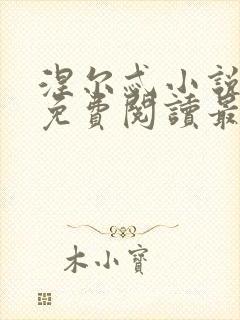 涅尔忒小説
免費閱讀最
木小寶